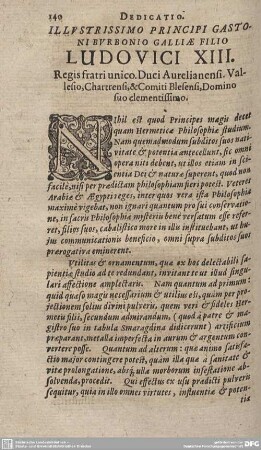 140 DEDICATIO.
ILLVSTRISSIMO PRINCIPI GASTO-
NI BVRBONIO GALLIÆ FILIO
LUDOVICI XIII.
Regis fratri unico. Duci Aurelianensi. Val-
lesio, Chartrensi, & Comiti Blesensi, Domino
suo clementissimo.
NIhil est quod Principes magis decet
quam Hermeticæ Philosophiæ studium.
Nam quemadmodum subditos suos nati-
vitate & potentia antecellunt, sic omni
opera niti debent, ut illos etiam in scien-
tia Dei & naturæ superent, quod non
facile, nisi per prædictam philosophiam fieri potest. Veteres
Arabiæ & Ægypti reges, inter quos vera ista Philosophia
maximè vigebat, non ignari quantum pro sui conservatio-
ne, in sacris Philosophiæ mysteriis bene versatum esse refer-
ret, filios suos, cabalistico more in illis instituebant, ut hu-
jus communicationis beneficio, omni supra subditos suos
prærogativa eminerent.
Vtilitas & ornamentum, quæ ex hoc delectabili sa-
pientiæ studio ad te redundant, invitant te ut illud singu-
lari affectione amplectaris. Nam quantum ad primum:
quid quæso magis necessarium & utilius est, quàm per pro-
jectionem solius dirimi pulveris, quem veri & fideles Her-
metis filii, secundum admirandum, (quod à patre & ma-
gistro suo in tabula Smaragdina didicerunt) artificium
præparant, metalla imperfecta in aurum & argentum con-
vertere posse. Quantum ad alterum: quæ animo satisfa-
ctio major contingere potest, quàm illa quæ à sanitate &
vitæ prolongatione, absq́; ulla morborum infestatione ab-
solvenda, procedit. Qui effectus ex usu prædicti pulveris
sequitur, quia in illo omnes virtutes, influentiæ & poten-
tiæ